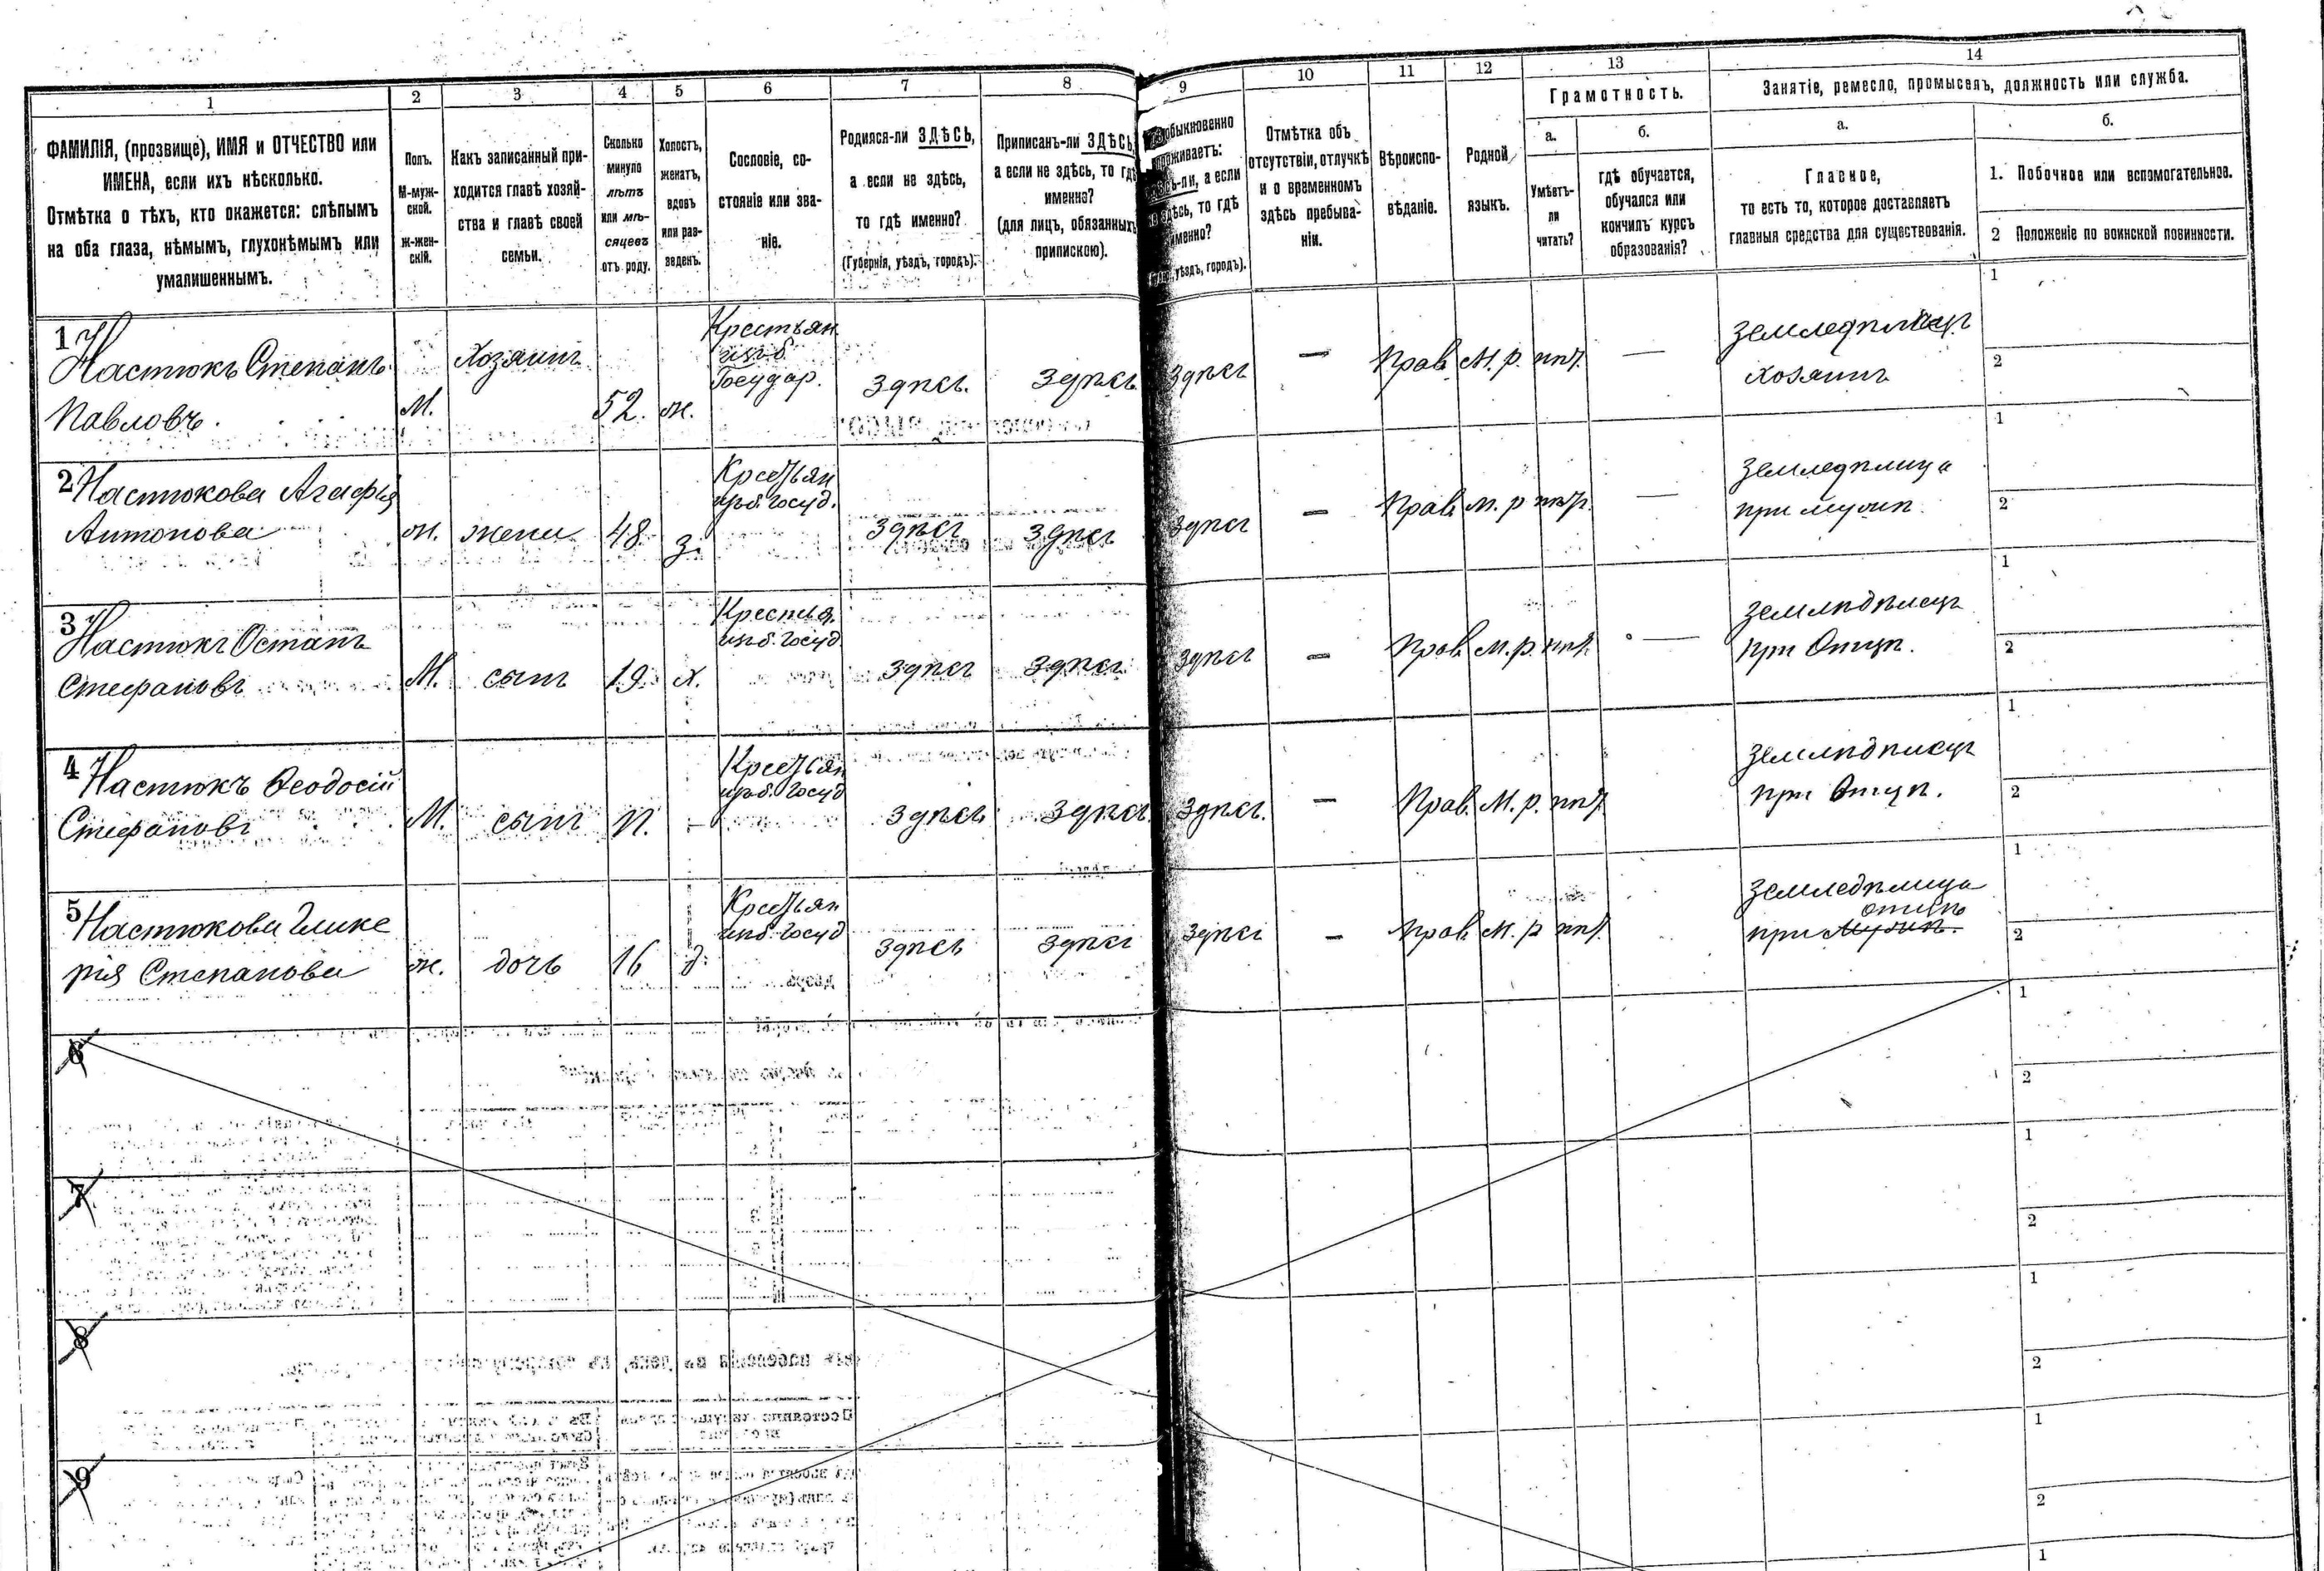 1
2
3
4
5
6
7
8
9
10
11
12
13
14
ФАМИЛІЯ, (прозвище), ИМЯ и ОТЧЕСТВО или
ИМЕНА, если ихъ нѣсколько.
Отмѣтка о тѣхъ, кто окажется: слѣпымъ
на оба глаза, нѣмымъ, глухонѣмымъ или
умалишеннымъ.
Полъ.
М-муж-
ской.
Ж-жен-
скій.
Какъ записанный при-
ходится главѣ хозяй-
ства и главѣ своей
семьи.
Сколько
минуло
лѣтъ
или мѣ-
сяцевъ
отъ роду.
Холостъ,
женатъ,
вдовъ
или раз-
веденъ.
Сословіе, со-
стояніе или зва-
ніе.
Родился-ли ЗДѢСЬ,
а если не здѣсь,
то гдѣ именно?
(Губернія, уѣздъ, городъ).
Приписанъ-ли ЗДѢСЬ,
а если не здѣсь, то гдѣ
именно?
(для лицъ, обязанныхъ
припискою).
обыкновенно
проживаетъ:
здѣсь-ли, а если
не здѣсь, то гдѣ
именно?
уѣздъ, городъ).
Отмѣтка объ
отсутствіи, отлучкѣ
и о временномъ
здѣсь пребыва-
ніи.
Вѣроиспо-
вѣданіе.
Родной
языкъ.
Грамотность.
а.
Умѣетъ-
ли
читать?
б.
гдѣ обучается,
обучался или
кончилъ курсъ
образованія?
Занятіе, ремесло, промыселъ, должность или служба.
а.
Главное,
то есть то, которое доставляетъ
главныя средства для существованія.
б.
1. Побочное или вспомогательное.
2 Положеніе по воинской повинности.
1
Настюкъ Степанъ
Павловъ
М.
Хозяинъ
52.
ж.
Крестьян
изъ б
Государ.
здѣсь.
здѣсь
здѣсь
—
Прав.
М. р.
нѣт.
—
земледѣлецъ
хозяинъ
1
2
2 Настюкова Агафія
Антонова
ж.
жена
48
з.
Крестьян
изъ б. госуд.
здѣсь
здѣсь
здѣсь
—
Прав.
М. р
нѣт.
—
земледѣлица
при мужѣ
1
2
3
Настюкъ Остапъ
Стефановъ
М.
сынъ
19
х.
Крестья.
изъ б. госуд
здѣсь
здѣсь
здѣсь
—
Прав.
М. р.
нѣт.
—
землѣдѣлецъ
при Отцѣ.
1
2
4 Настюкъ Ѳеодосій
Стефановъ
М.
сынъ
-
Крестьян
изъ б. госуд
здѣсь
здѣсь
здѣсь.
—
Прав.
М. р.
нѣт.
землѣдѣлецъ
при Отцѣ.
1
2
5 Настюкова Глике
рія Степанова
ж.
дочь
16
д.
Крестьян
изъ б. госуд
здѣсь
здѣсь
здѣсь
—
Прав.
М. р
нѣт.
земледѣлица
отцѣ
при мужѣ.
1
2
6
1
2
7
1
2
8
1
2
9
1
2
1